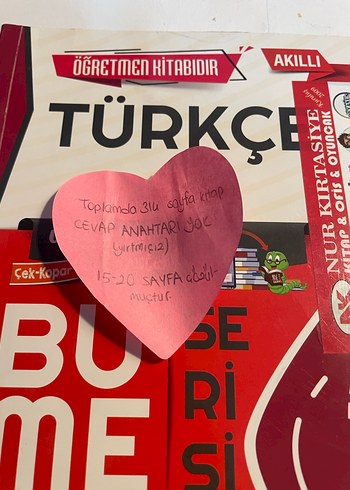 ÖĞRETMEN KİTABIDIR
AKILLI
TÜRKÇE
Toplamda 314 sayfa kitap
CEVAP ANAHTARI YOK
(yırtmışız)
15-20 SAYFA çözül-
müştür
Çek-Kopar
BU
ME
SE
Rİ
Sİ
NUR KIRTASİYE
KİTAP & OFİS & OYUNCAK